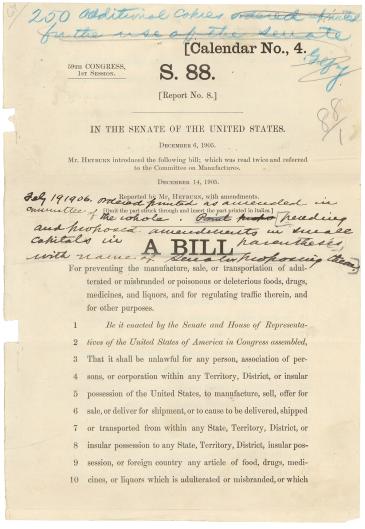 250 additional copies ordered printed
for the use of the senate
[Calendar No., 4.
59TH CONGRESS,
1ST SESSION.
S. 88.
[Report No. 8.]
88
IN THE SENATE OF THE UNITED STATES.
DECEMBER 6, 1905.
Mr. HEYBURN introduced the following bill; which was read twice and referred
to the Committee on Manufactures.
DECEMBER 14, 1905.
Reported by Mr. HEYBURN, with amendments.
[Omit the part struck through and insert the part printed in italics.]
1906. Ordered printed as amended in
Committee of the whole.
and proposed amendments in small
capitals in parentheses,
with name of Senator proposing them]
A BILL
For preventing the manufacture, sale, or transportation of adul-
terated or misbranded or poisonous or deleterious foods, drugs,
medicines, and liquors, and for regulating traffic therein, and
for other purposes.
1 Be it enacted by the Senate and House of Representa-
2 tives of the United States of America in Congress assembled,
3 That it shall be unlawful for any person, association of per-
4 sons, or corporation within any Territory, District, or insular
5 possession of the United States, to manufacture, sell, offer for
6 sale, or deliver for shipment, or to cause to be delivered, shipped
7 or transported from within any State, Territory, District, or
8 insular possession to any State, Territory, District, insular pos-
9 session, or foreign country any article of food, drugs, medi-
10 cines, or liquors which is adulterated or misbranded, or which